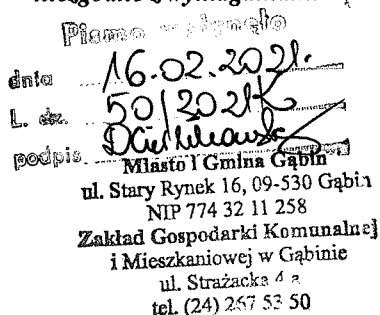 Pismo wpłynęło
dnia 16.02.2021.
L. dz. 50/2021K
podpis
Miasto i Gmina Gąbin
ul. Stary Rynek 16, 09-530 Gąbin
NIP 774 32 11 258
Zakład Gospodarki Komunalnej
i Mieszkaniowej w Gąbinie
ul. Strażacka 4 a
tel. (24) 267 53 50